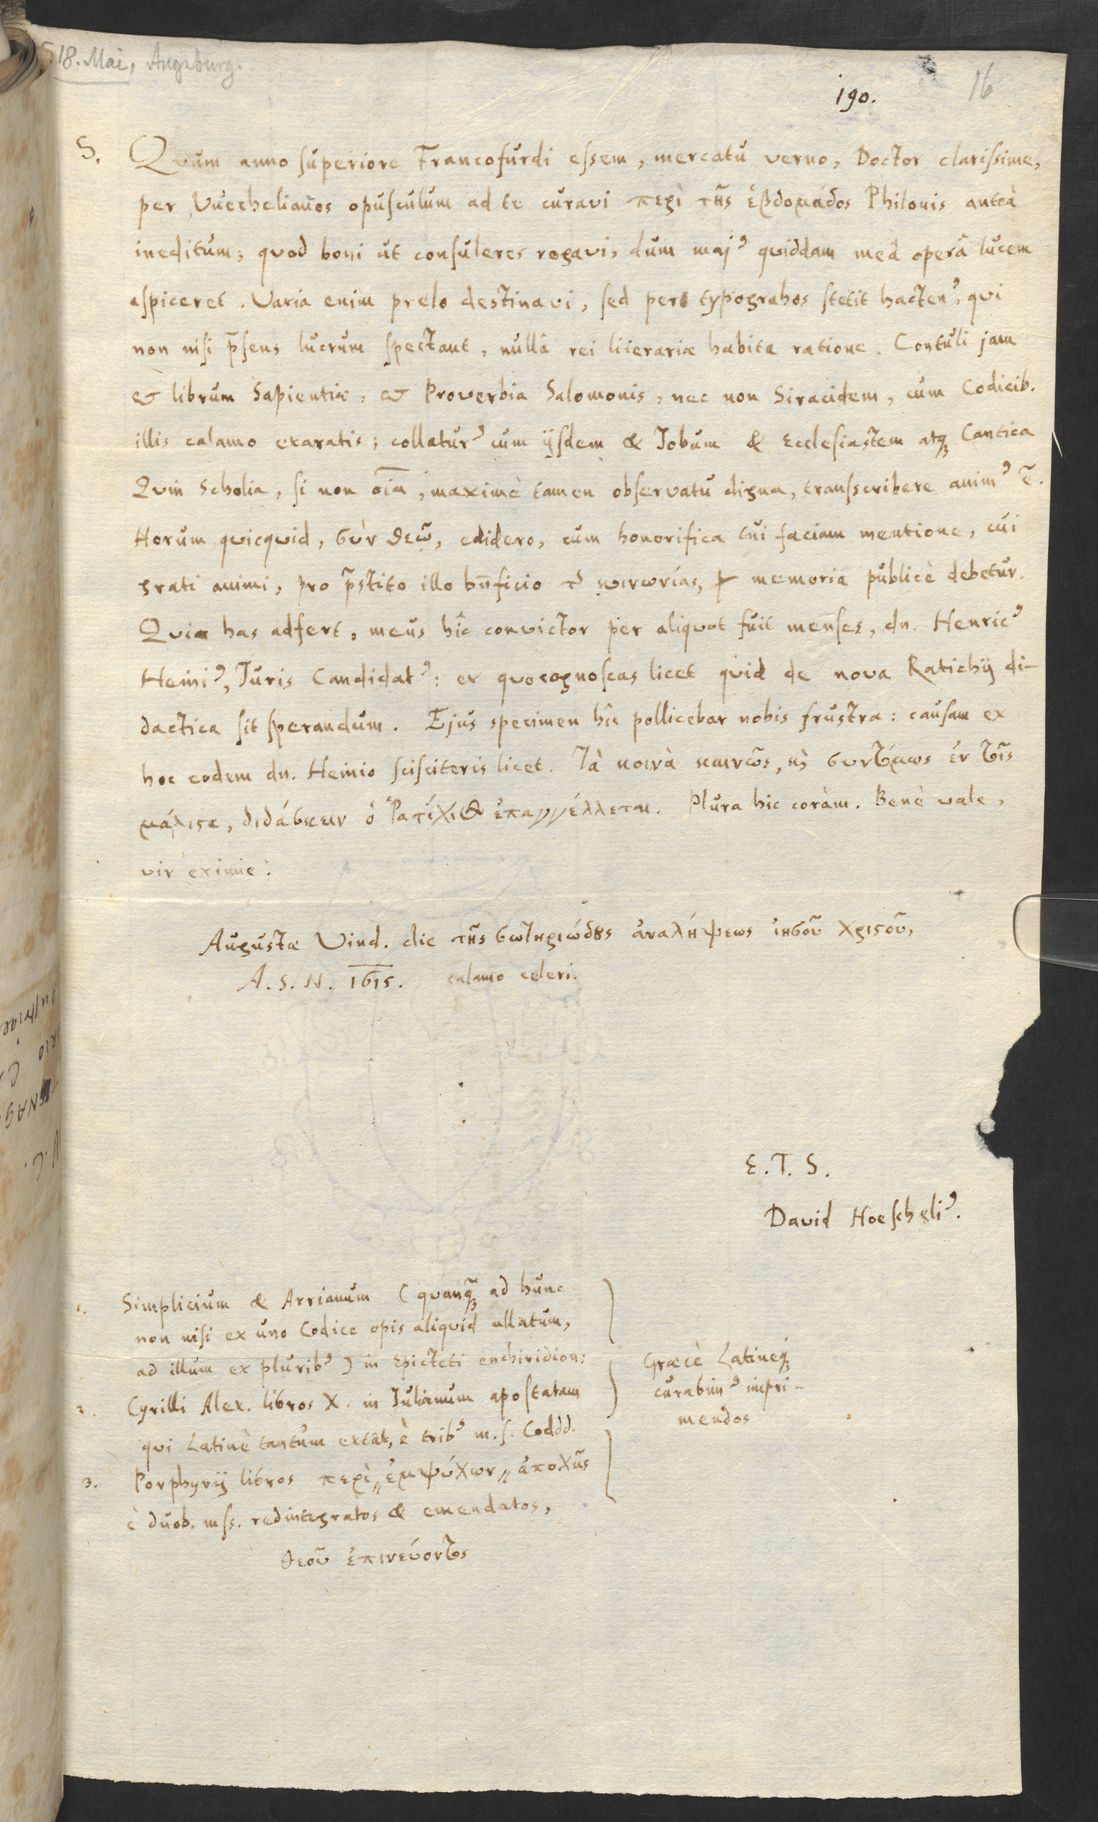 18. Mai, Augsburg.
190.
16
S. Quum anno superiore Francofurdi essem, mercatu verno, Doctor clarissime,
per Wechelianos opusculum ad te curavi περὶ τῆς ἑβδομάδος Philonis anteà
ineditum; quod boni ut consuleres rogavi, dum maj⁹ quiddam meâ operâ lucem
aspiceret. Varia enim prelo destinavi, sed per typographos stetit hacten⁹, qui
non nisi p̃sens lucrum spectant, nullâ rei literariæ habita ratione. Contuli jam
& librum Sapientiæ, & Proverbia Salomonis, nec non Siracidem, cum Codicib.
illis calamo exaratis; collatur⁹ cum ijsdem & Jobum & Ecclesiastem atq; Cantica
Quin Scholia, si non oīa, maximè tamen observatu digna, transscribere anim⁹ ẽ.
Horum quicquid, σὺν θεῷ, edidero, cum honorifica tui faciam mentione, cui
grati animi, pro p̃stito illo bñficio τ͂ κοινωνίας, memoria publicè debetur.
Quia has adfert, meus hîc convictor per aliquot fuit menses, dn. Henric⁹
Heini⁹, Juris Candidat⁹: ex quo cognoscas licet quid de nova Ratichij di-
dactica sit sperandum. Ejus specimen hîc pollicebar nobis frustra: causam ex
hoc eodem dn. Heinio scisciteris licet. Τὰ κοινὰ καινῶς, κὶ συντόμως ἐν τοῖς
μάλιστα, διδάσκειν ὁ Ῥατίχιος ἐπαγγέλλεται. Plura hic coràm. Benè vale,
vir eximie:
Augustæ Vind. die τῆς σωτηριώδους ἀναλήψεως ἰησοῦ χριστοῦ,
A. S. N. 1615. calamo celeri.
E. T. S.
David Hoescheli⁹.
1. Simplicium & Arrianum (quanq̃; ad hunc
non nisi ex uno Codice opis aliquid allatum,
ad illum ex plurib⁹) in Epicteti enchiridion:
2. Cyrilli Alex. libros X. in Julianum apostatam
qui Latinè tantùm extãt, è trib⁹ m.s. Coddd.
3. Porphyrij libros περὶ „ἐμψύχων„ ἀποχῆς
è duob. mss. redintegratos & emendatos,
θεοῦ ἐπινεύοντος
Græcè Latineq́;
curabim⁹ impri-
mendos